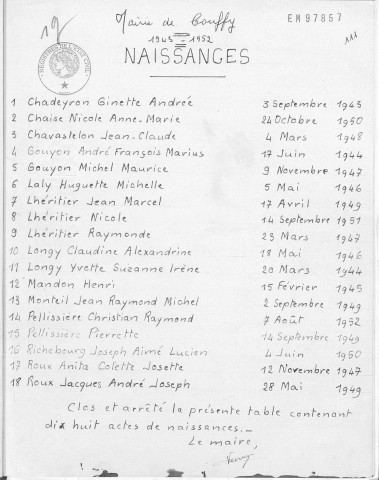 19
Mairie de Bouffy
EM97857
1943 - 1952
111
NAISSANCES
1 Chadeyron Ginette Andrée 3 Septembre 1943
2 Chaise Nicole Anne-Marie 24 Octobre 1950
3 Chavastelon Jean-Claude 4 Mars 1948
4 Gouyon André François Marius 17 Juin 1944
5 Gouyon Michel Maurice 9 Novembre 1947
6 Laly Huguette Michelle 5 Mai 1946
7 Lhéritier Jean Marcel 17 Avril 1949
8 Lhéritier Nicole 14 Septembre 1951
9 Lhéritier Raymonde 23 Mars 1947
10 Longy Claudine Alexandrine 18 Mai 1946
11 Longy Yvette Suzanne Irène 20 Mars 1944
12 Mandon Henri 15 Février 1945
13 Monteil Jean Raymond Michel 2 Septembre 1949
14 Pellissière Christian Raymond 7 Août 1952
15 Pellissière Pierrette 14 Septembre 1949
16 Richebourg Joseph Aimé Lucien 4 Juin 1950
17 Roux Anita Colette Josette 12 Novembre 1947
18 Roux Jacques André Joseph 28 Mai 1949
Clos et arrêté la présente table contenant
dix huit actes de naissances._
Le maire,